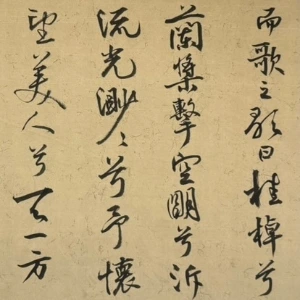 而歌之歌曰桂棹兮
蘭槳擊空明兮泝
流光渺〻兮予懷
望美人兮天一方